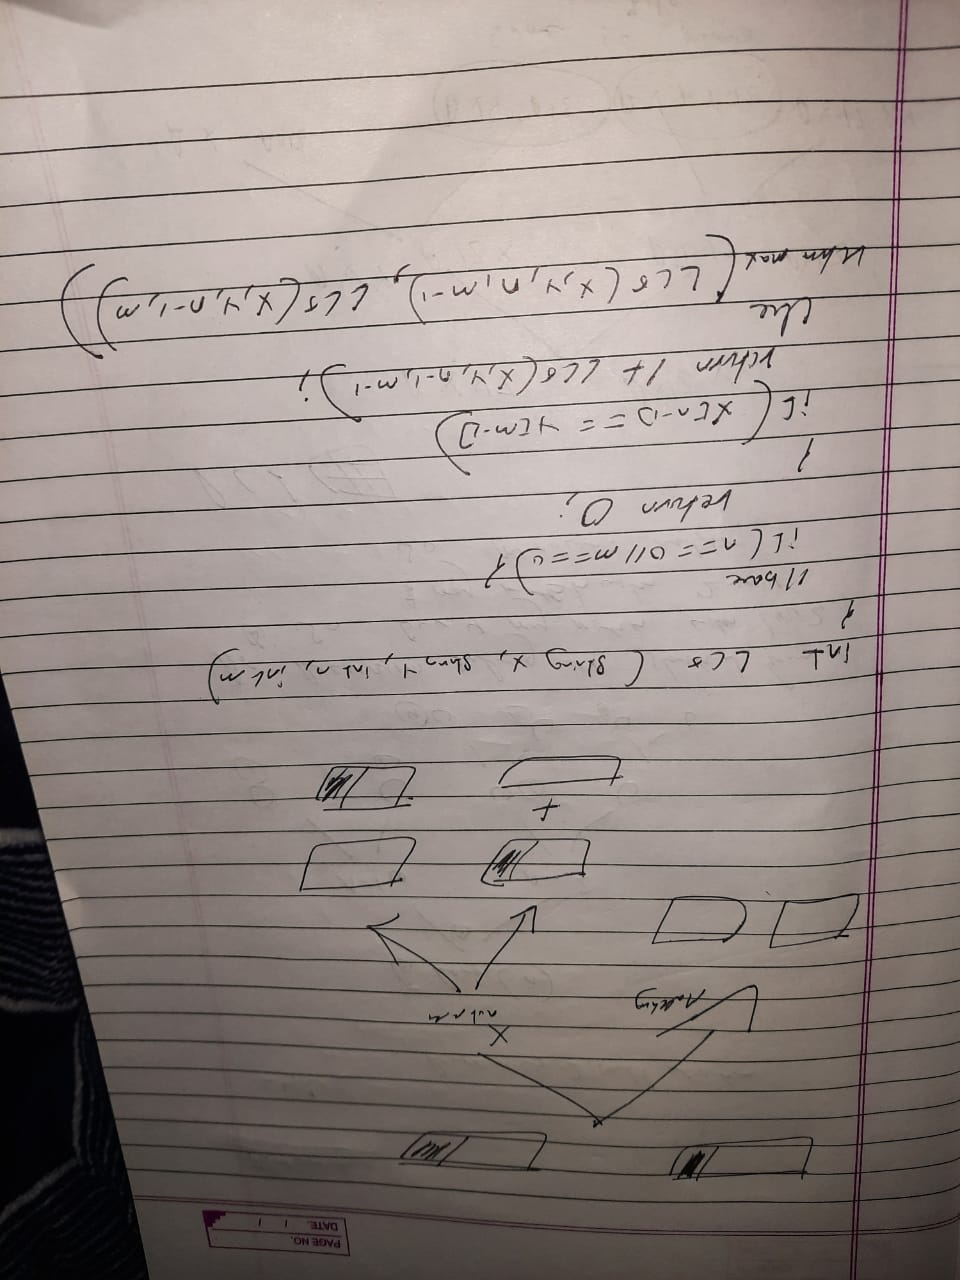 PAGE NO.
DATE. / /
matching
X
not m
+
int LCS (string X, string Y, int n, int m)
{
// base
if (n == 0 || m == 0) {
return 0;
}
if (X[n-1] == Y[m-1])
return 1 + LCS(X, Y, n-1, m-1);
else
return max(LCS(X, Y, n, m-1), LCS(X, Y, n-1, m))